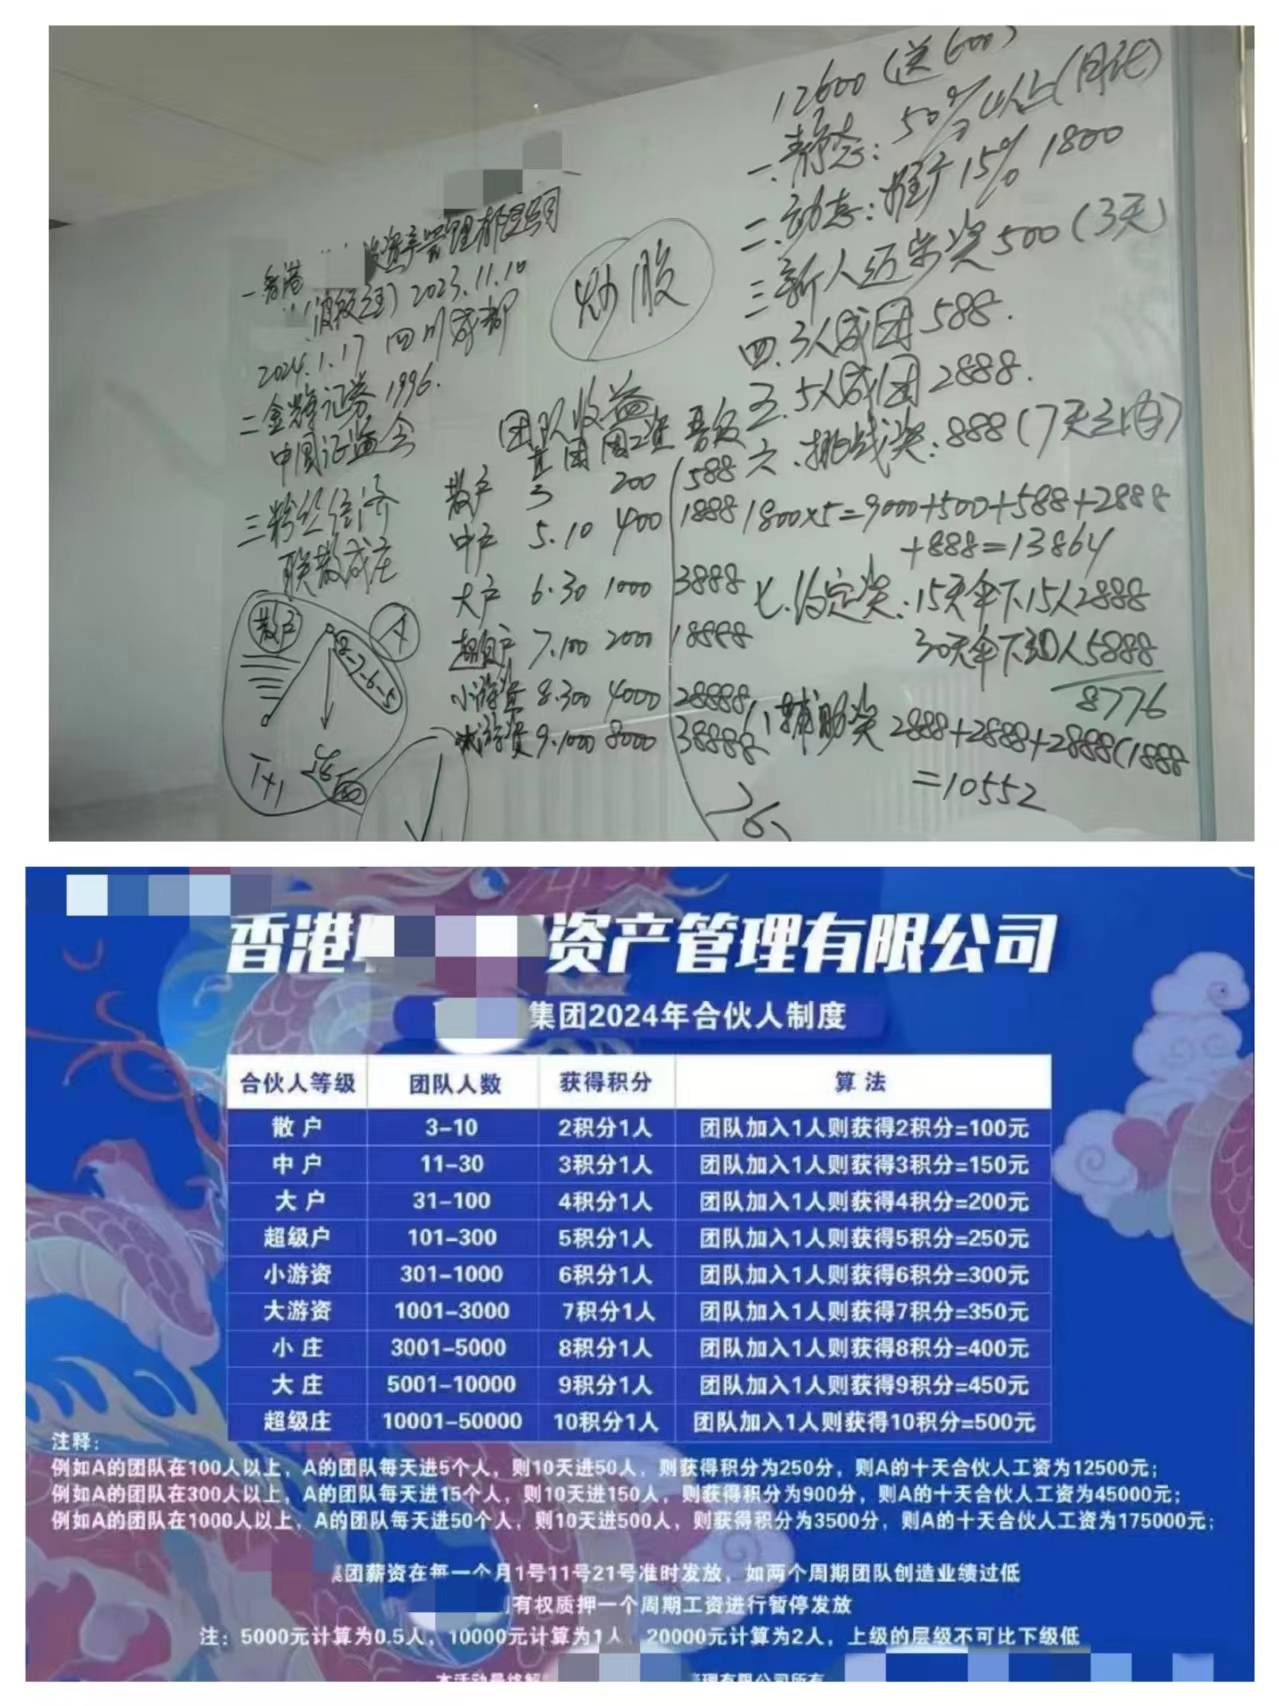 12600(送600)
一.静态:50%以上(月化)
二.动态:推广15% 1800
三新人迈宋奖500(3天)
四.3人成团588.
五.5人成团2888.
六.挑战奖:888(7天之内)
1800x5=9000+500+588+2888
+888=13864
七.约定奖:15天伞下15人2888
30天伞下30人5888
8776
八辅助奖2888+2888+2888(1888
=10552
一香港
资产管理有限公司
2023.11.10
2024.1.17 四川成都
二金辉证券1996.
中国证监会
三粉丝经济
联散成庄
散户
T+1
A
炒股
团队收益
直 团 周工资 晋级
散户 3 200 588
中户 5.10 400 1888
大户 6.30 1000 3888
超级户 7.100 2000 18888
小游资 8.300 4000 28888
大游资 9.1000 8000 38888
香港 资产管理有限公司
集团2024年合伙人制度
合伙人等级 团队人数 获得积分 算法
散户 3-10 2积分1人 团队加入1人则获得2积分=100元
中户 11-30 3积分1人 团队加入1人则获得3积分=150元
大户 31-100 4积分1人 团队加入1人则获得4积分=200元
超级户 101-300 5积分1人 团队加入1人则获得5积分=250元
小游资 301-1000 6积分1人 团队加入1人则获得6积分=300元
大游资 1001-3000 7积分1人 团队加入1人则获得7积分=350元
小庄 3001-5000 8积分1人 团队加入1人则获得8积分=400元
大庄 5001-10000 9积分1人 团队加入1人则获得9积分=450元
超级庄 10001-50000 10积分1人 团队加入1人则获得10积分=500元
注释:
例如A的团队在100人以上，A的团队每天进5个人，则10天进50人，则获得积分为250分，则A的十天合伙人工资为12500元;
例如A的团队在300人以上，A的团队每天进15个人，则10天进150人，则获得积分为900分，则A的十天合伙人工资为45000元;
例如A的团队在1000人以上，A的团队每天进50个人，则10天进500人，则获得积分为3500分，则A的十天合伙人工资为175000元;
集团薪资在每一个月1号11号21号准时发放，如两个周期团队创造业绩过低
有权质押一个周期工资进行暂停发放
注：5000元计算为0.5人，10000元计算为1人，20000元计算为2人，上级的层级不可比下级低
本活动最终解 管理有限公司所有